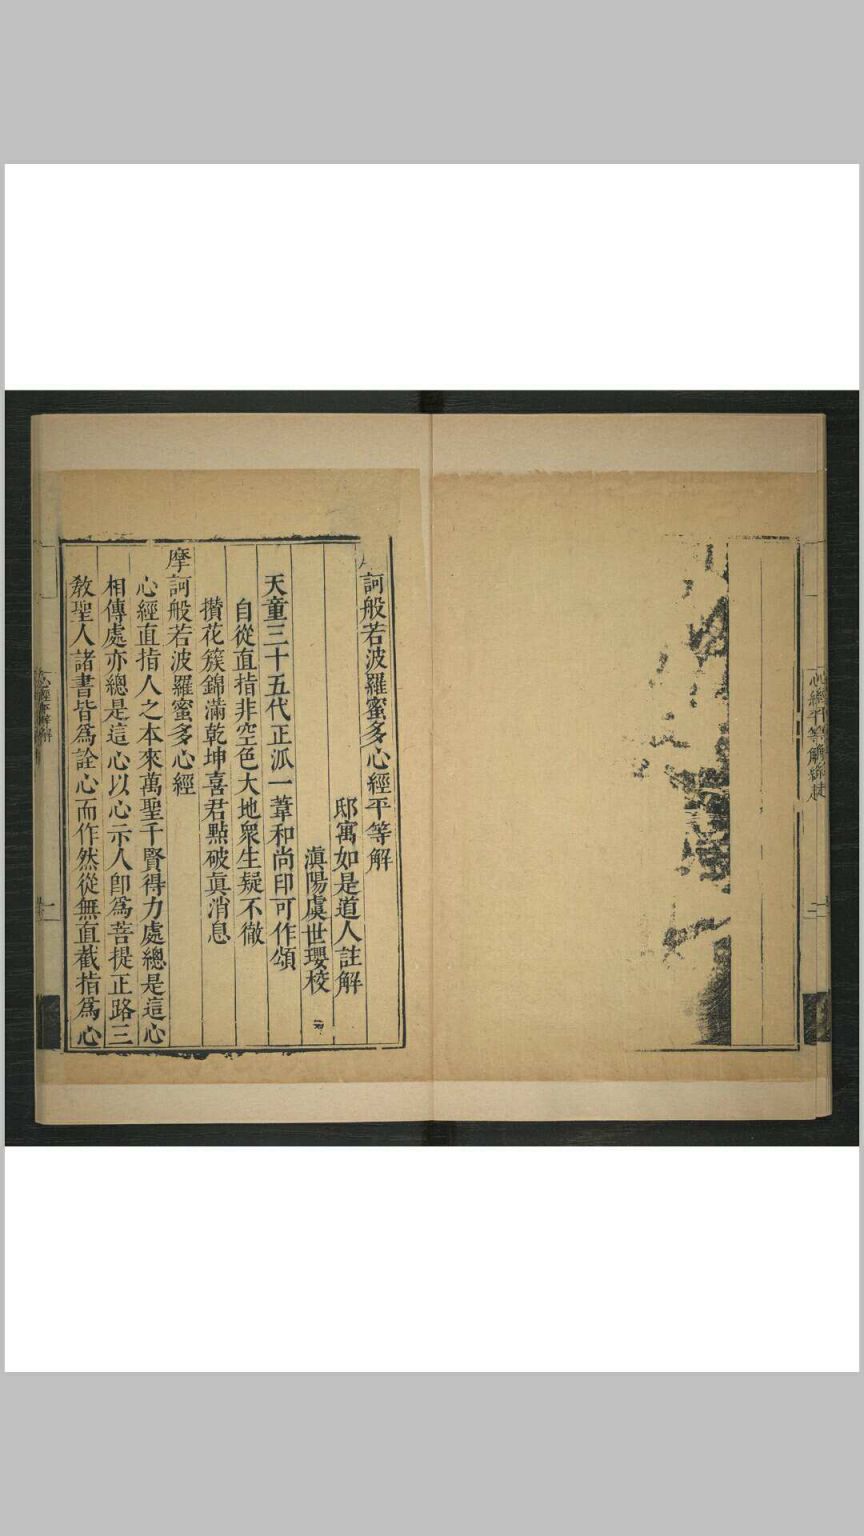 心經平等解
訶般若波羅蜜多心經平等解
邸寓如是道人註解
滇陽虞世瓔校
天童三十五代正派一葦和尚印可作頌
自從直指非空色大地衆生疑不徹
攢花簇錦滿乾坤喜君㸃破眞消息
摩訶般若波羅蜜多心經
心經直指人之本來萬聖千賢得力處總是這心
相傳處亦總是這心以心示人卽爲菩提正路三
教聖人諸書皆爲詮心而作然從無直截指爲心
心經